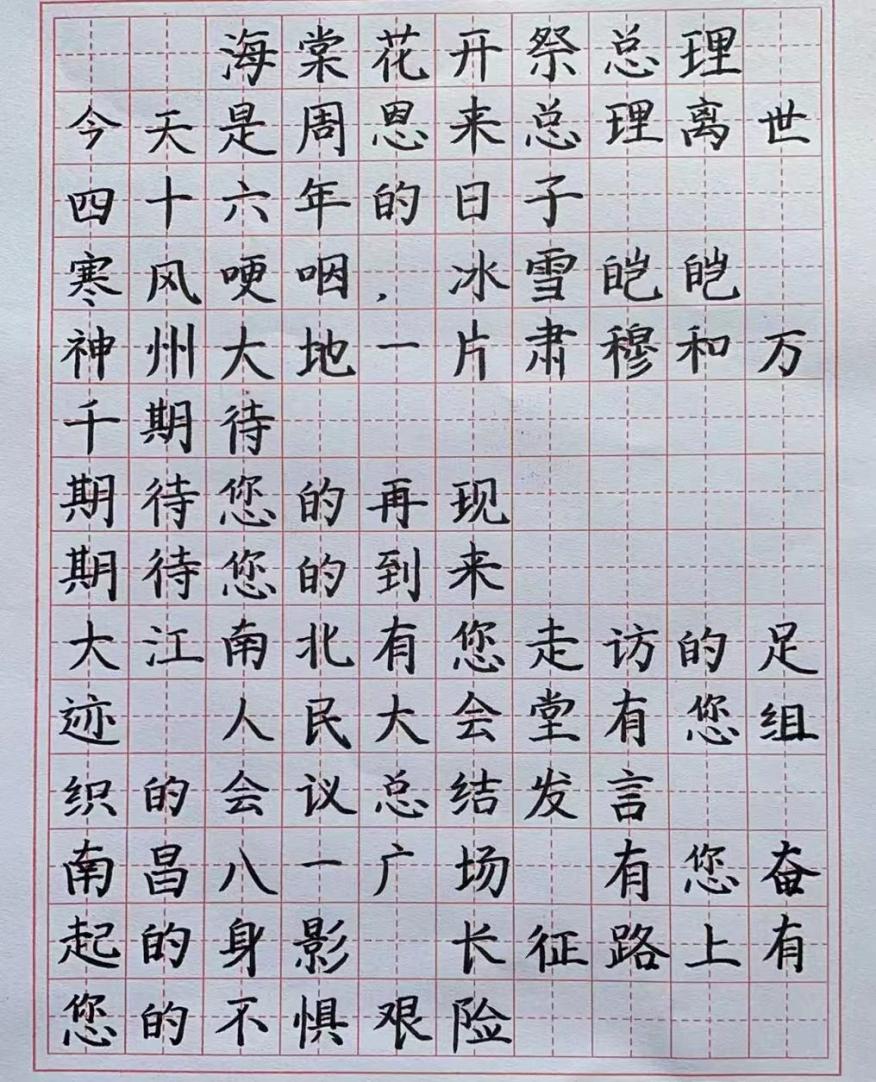 海棠花开祭总理
今天是周恩来总理离世
四十六年的日子
寒风哽咽，冰雪皑皑
神州大地一片肃穆和万
千期待
期待您的再现
期待您的到来
大江南北有您走访的足
迹 人民大会堂有您组
织的会议总结发言
南昌八一广场 有您奋
起的身影 长征路上有
您的不惧艰险